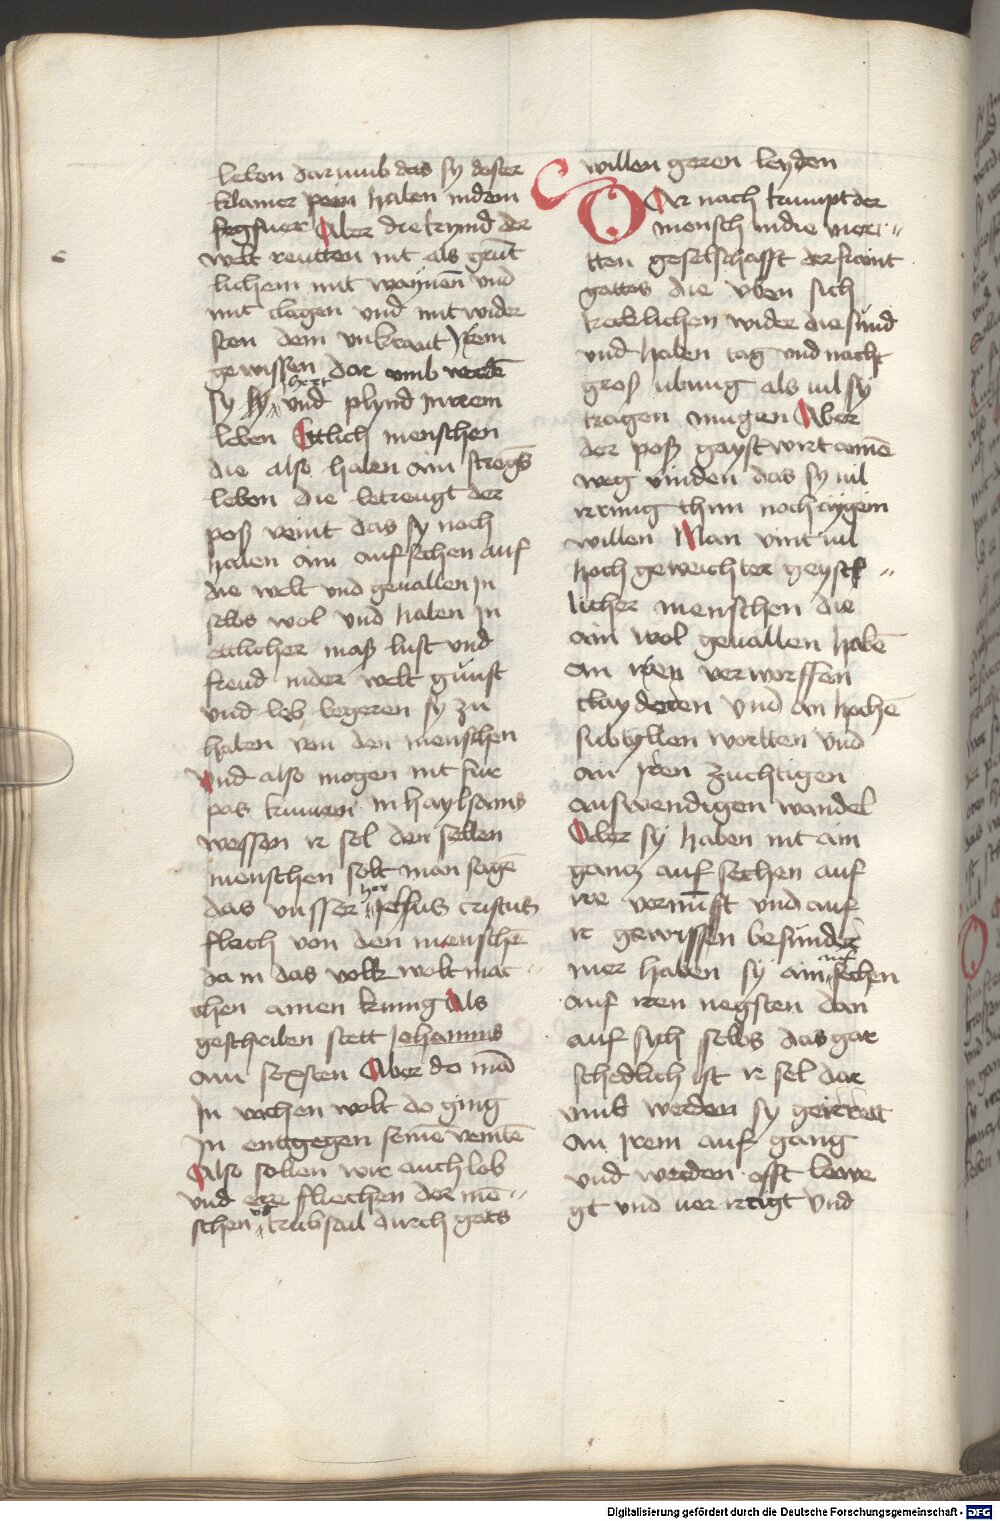 leben darumb das sy dester
klainer pein haben in dem
fegfuer Aber die kynnd der
welt reutten nit als grūt
lichem mit waynen und
mit clagen und mit wider
sten dem unkraut irem
gewissen dar umb werdē
sy hert und plynd in irem
leben Ettlich menschen
die also haben ain strengs
leben die betreugt der
poß veint das sy noch
haben ain aufsechen auf
die welt und geuallen in
selbs wol und haben in
ettlicher maß lust und
freud in der welt gunst
und lob begeren sy zu
haben von den menschen
Und also mogen nit fur
pas kumen in haylsams
wessen ir sel den selben
menschen solt man sagē
das unsser her Jesus cristus
floch von den menschē
da in das volk wolt mac
chen ainen kunig Als
geschriben stett Johannis
am sexsten Aber do mā
in vachen wolt do ging
in enttgegen seinē veintē
Also sollen wir auch lob
und ere fliechen der mē
schen trubsail durch gots
willen geren leyden
DAr nach kumpt der
mensch in die vier
tten geselschafft der frewnt
gottes die yben sich
kecklichen wider die sund
und haben tag und nacht
groß ubung als uil sy
tragen mugen Aber
der poß gayst wirt ainē
weg vinden das sy uil
irrung thun noch aygem
willen Man vint uil
hoch geweichter geyst
licher menschen die
ain wol geuallen habē
an iren verworffen
claydern und an hochē
subtyllen wortten und
an iren zuchtigen
auswendigen wandel
Aber sy haben nit ain
gancz auf sechen auf
ire vernufft und auf
ir gewissen besunder
mer haben sy ain auf sechen
auf iren negsten dan
auf sych selbs das gar
schedlich ist ir sel dar
umb werden sy geirrett
an irem auf gang
und werden offt bewe
gt und uer irrigt und
Digitalisierung gefördert durch die Deutsche Forschungsgemeinschaft - DFG